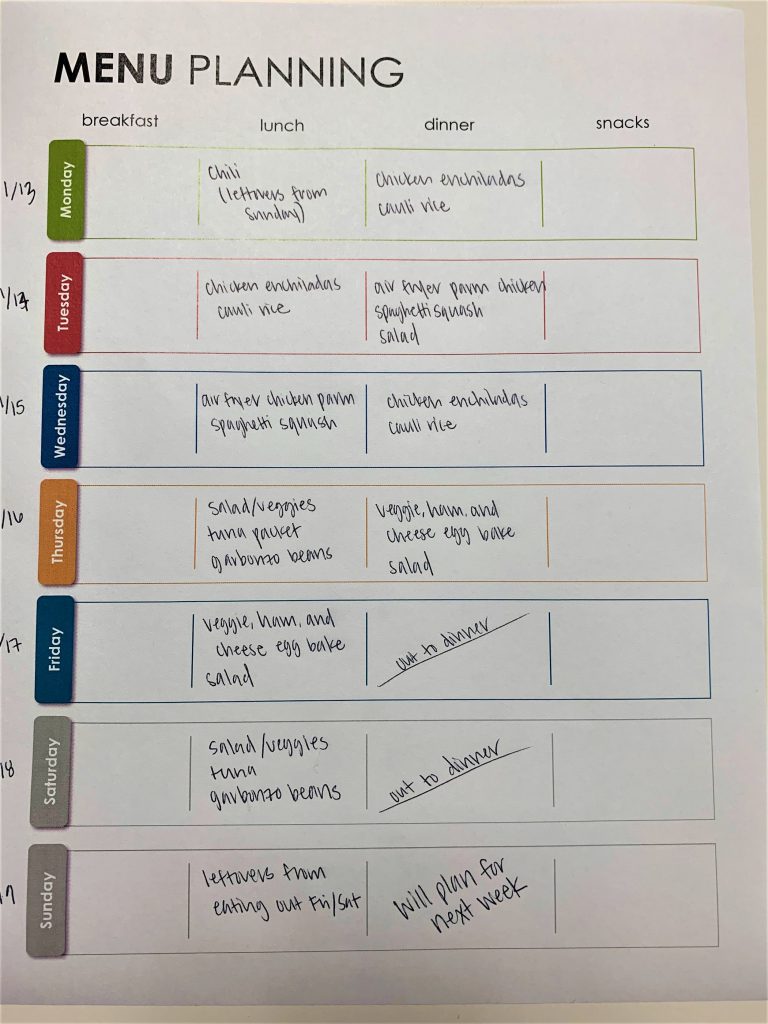 MENU PLANNING
breakfast lunch dinner snacks
1/13
Monday
chili
(leftovers from
Sunday)
chicken enchiladas
cauli rice
1/14
Tuesday
chicken enchiladas
cauli rice
air fryer parm chicken
spaghetti squash
salad
1/15
Wednesday
air fryer chicken parm
spaghetti squash
chicken enchiladas
cauli rice
/16
Thursday
salad/veggies
tuna packet
garbonzo beans
veggie, ham, and
cheese egg bake
salad
/17
Friday
veggie, ham, and
cheese egg bake
salad
out to dinner
18
Saturday
salad/veggies
tuna
garbonzo beans
out to dinner
Sunday
leftovers from
eating out Fri/Sat
will plan for
next week